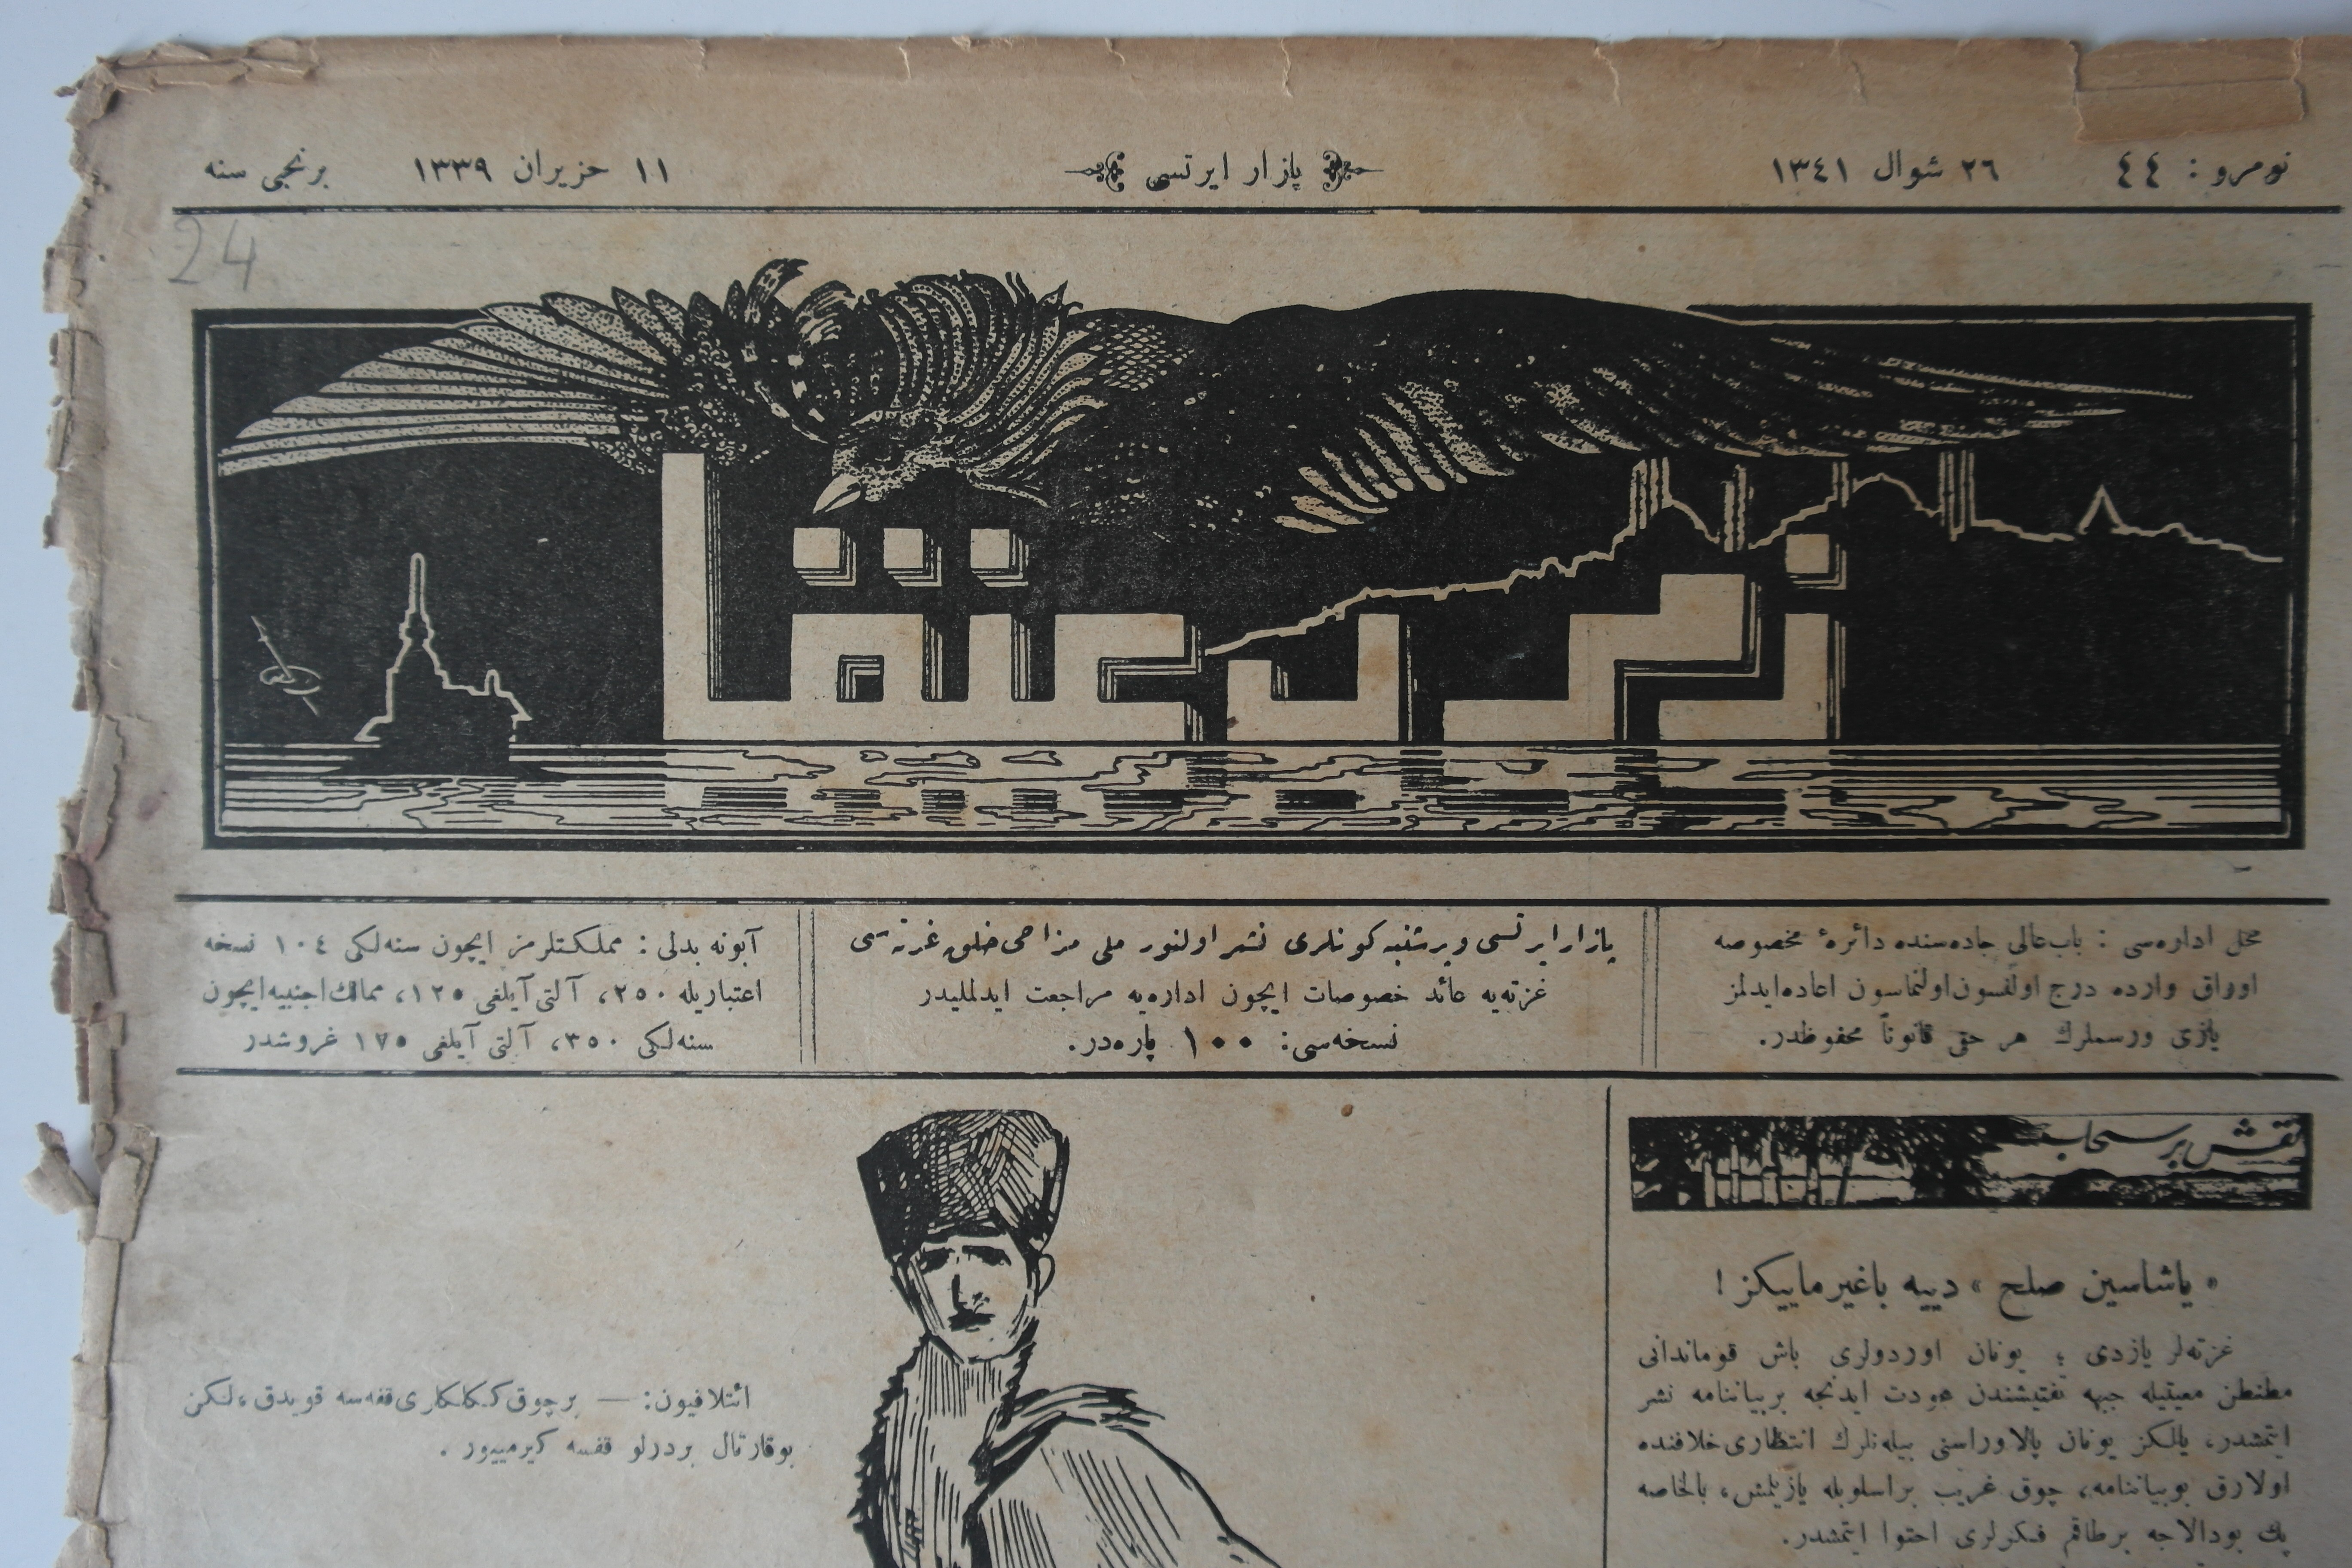 نومرو : ٤٤
٢٦ شوال ١٣٤١
پازار ايرتسی
١١ حزيران ١٣٣٩
برنجی سنه
24
زمرد عنقا
محل اداره‌سی : باب‌عالی جاده‌سنده دائرهٔ مخصوصه
اوراق وارده درج اولنسون اولنماسون اعاده ايدلمز
يازی ورسملرك هر حقی قانوناً محفوظدر.
پازار ايرتسی و پرشنبه كونلری نشر اولنور ملی مزاحی خلق غزته‌سی
غزته‌يه عائد خصوصات ايچون اداره‌يه مراجعت ايدلمليدر
نسخه‌سی: ١٠٠ پاره‌در.
آبونه بدلی : مملكتلرمز ايچون سنه‌لكی ١٠٤ نسخه
اعتباريله ٢٥٠، آلتی آيلغی ١٢٥، ممالك اجنبيه ايچون
سنه‌لكی ٣٥٠، آلتی آيلغی ١٧٥ غروشدر
نقش بر سحاب
« ياشاسين صلح » دييه باغيرماييكز !
غزته‌لر يازدی ؛ يونان اوردولری باش قوماندانی
مطنطن معيتيله جبهه تفتيشندن عودت ايدنجه بر بياننامه نشر
ايتمشدر، يالكز يونان پالاوراسنی بيله‌نلرك انتظاری خلافنده
اولارق بو بياننامه، چوق غريب بر اسلوبله يازيلمش، بالخاصه
پك بودالاجه بر طاقم فكرلری احتوا ايتمشدر.
ائتلافيون: — بر چوق كككلری قفسه قويدق، لكن
بو قارتال بر درلو قفسه كيرمييور .